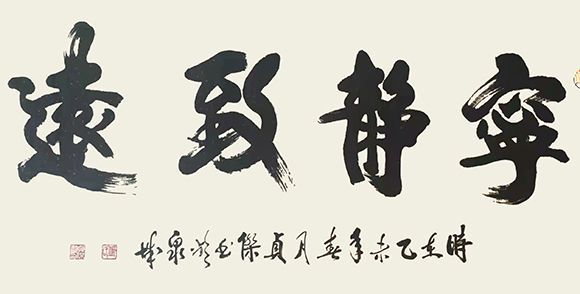 寧静致遠
時在乙未年春月貞傑书於泉城